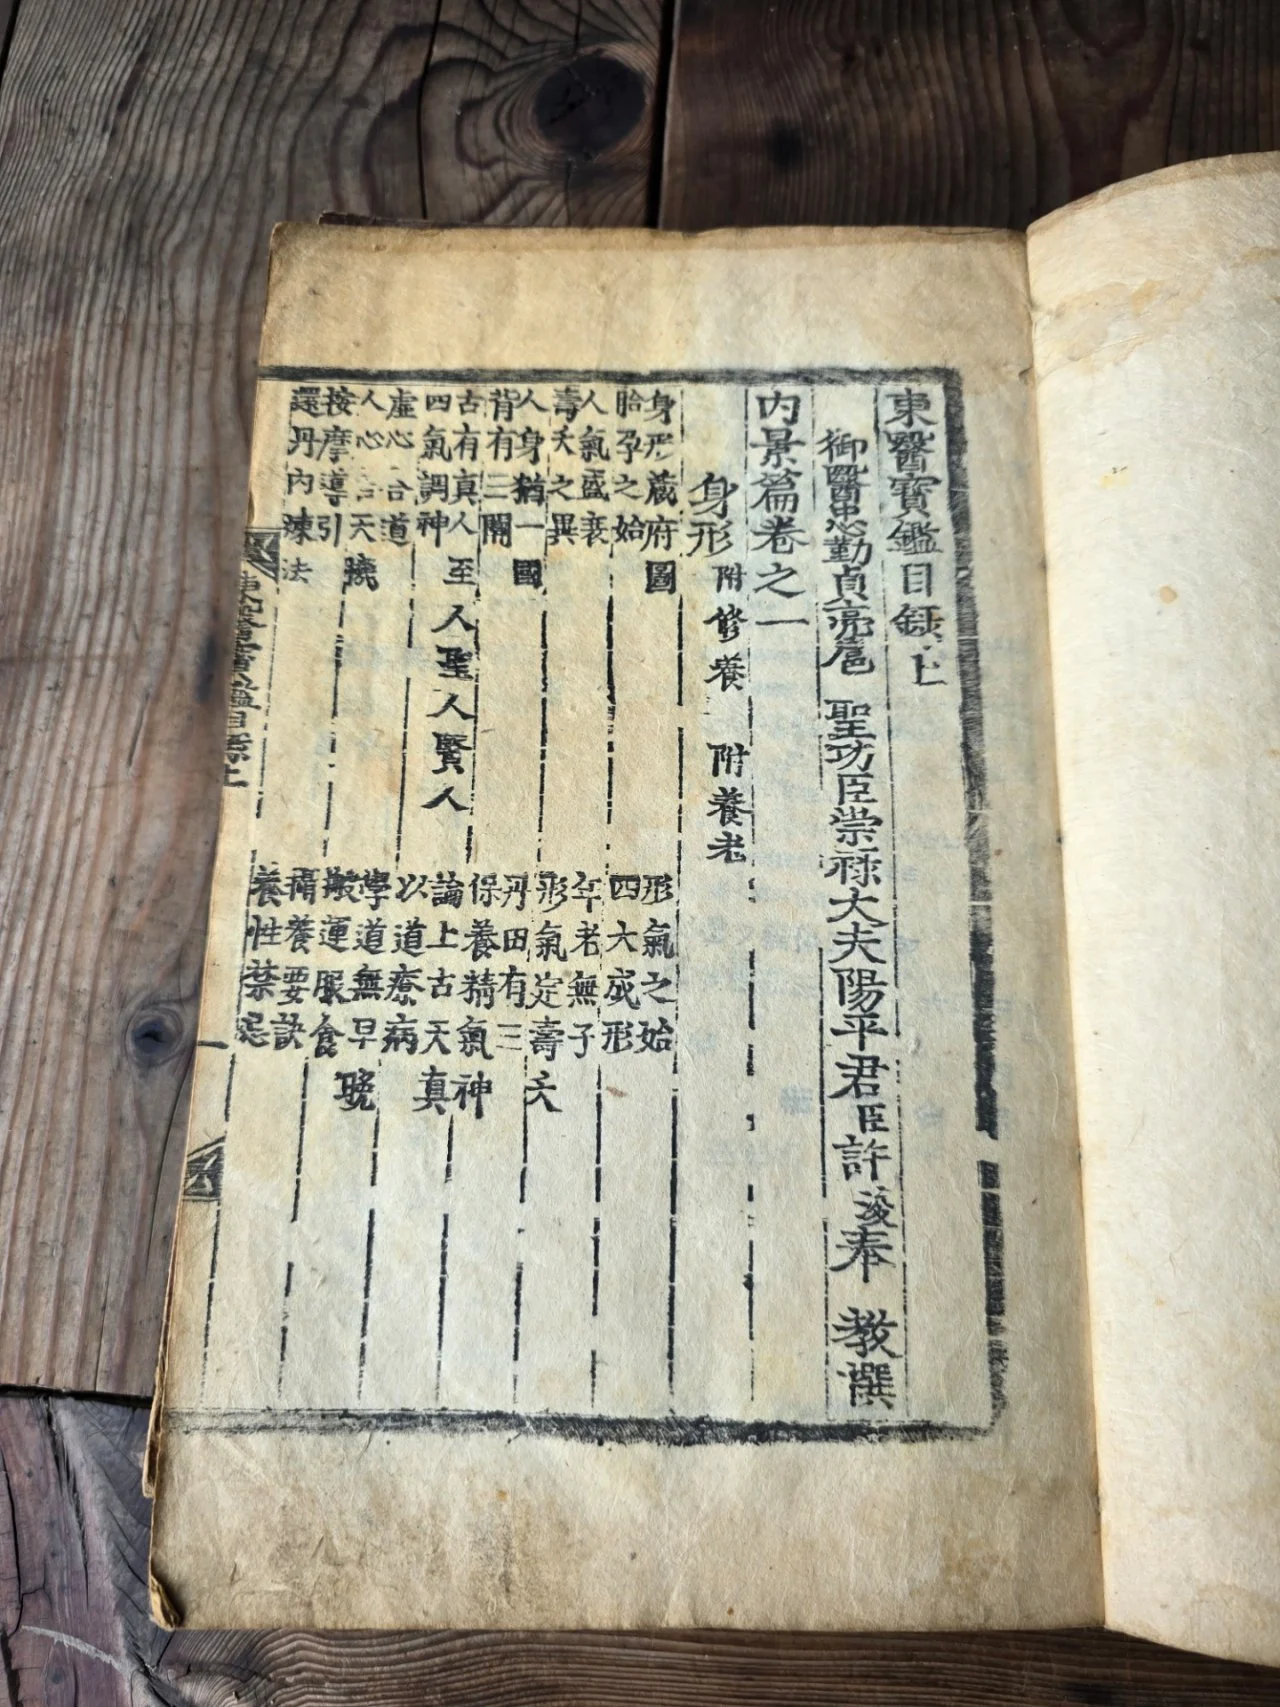 東醫寶鑑目錄上
御醫忠勤貞亮扈 聖功臣崇祿大夫陽平君臣許浚奉 教撰
内景篇卷之一
身形 附修養 附養老
身形藏府圖 形氣之始
胎孕之始 四大成形
人氣盛衰 年老無子
壽夭之異 形氣定壽夭
人身猶一國 丹田有三
背有三關 保養精氣神
古有真人至人聖人賢人 論上古天真
四氣調神 以道療病
虛心合道 學道無早晩
人心合天機 搬運服食
按摩導引 攝養要訣
還丹内煉法 養性禁忌
東醫寶鑑目錄上 一